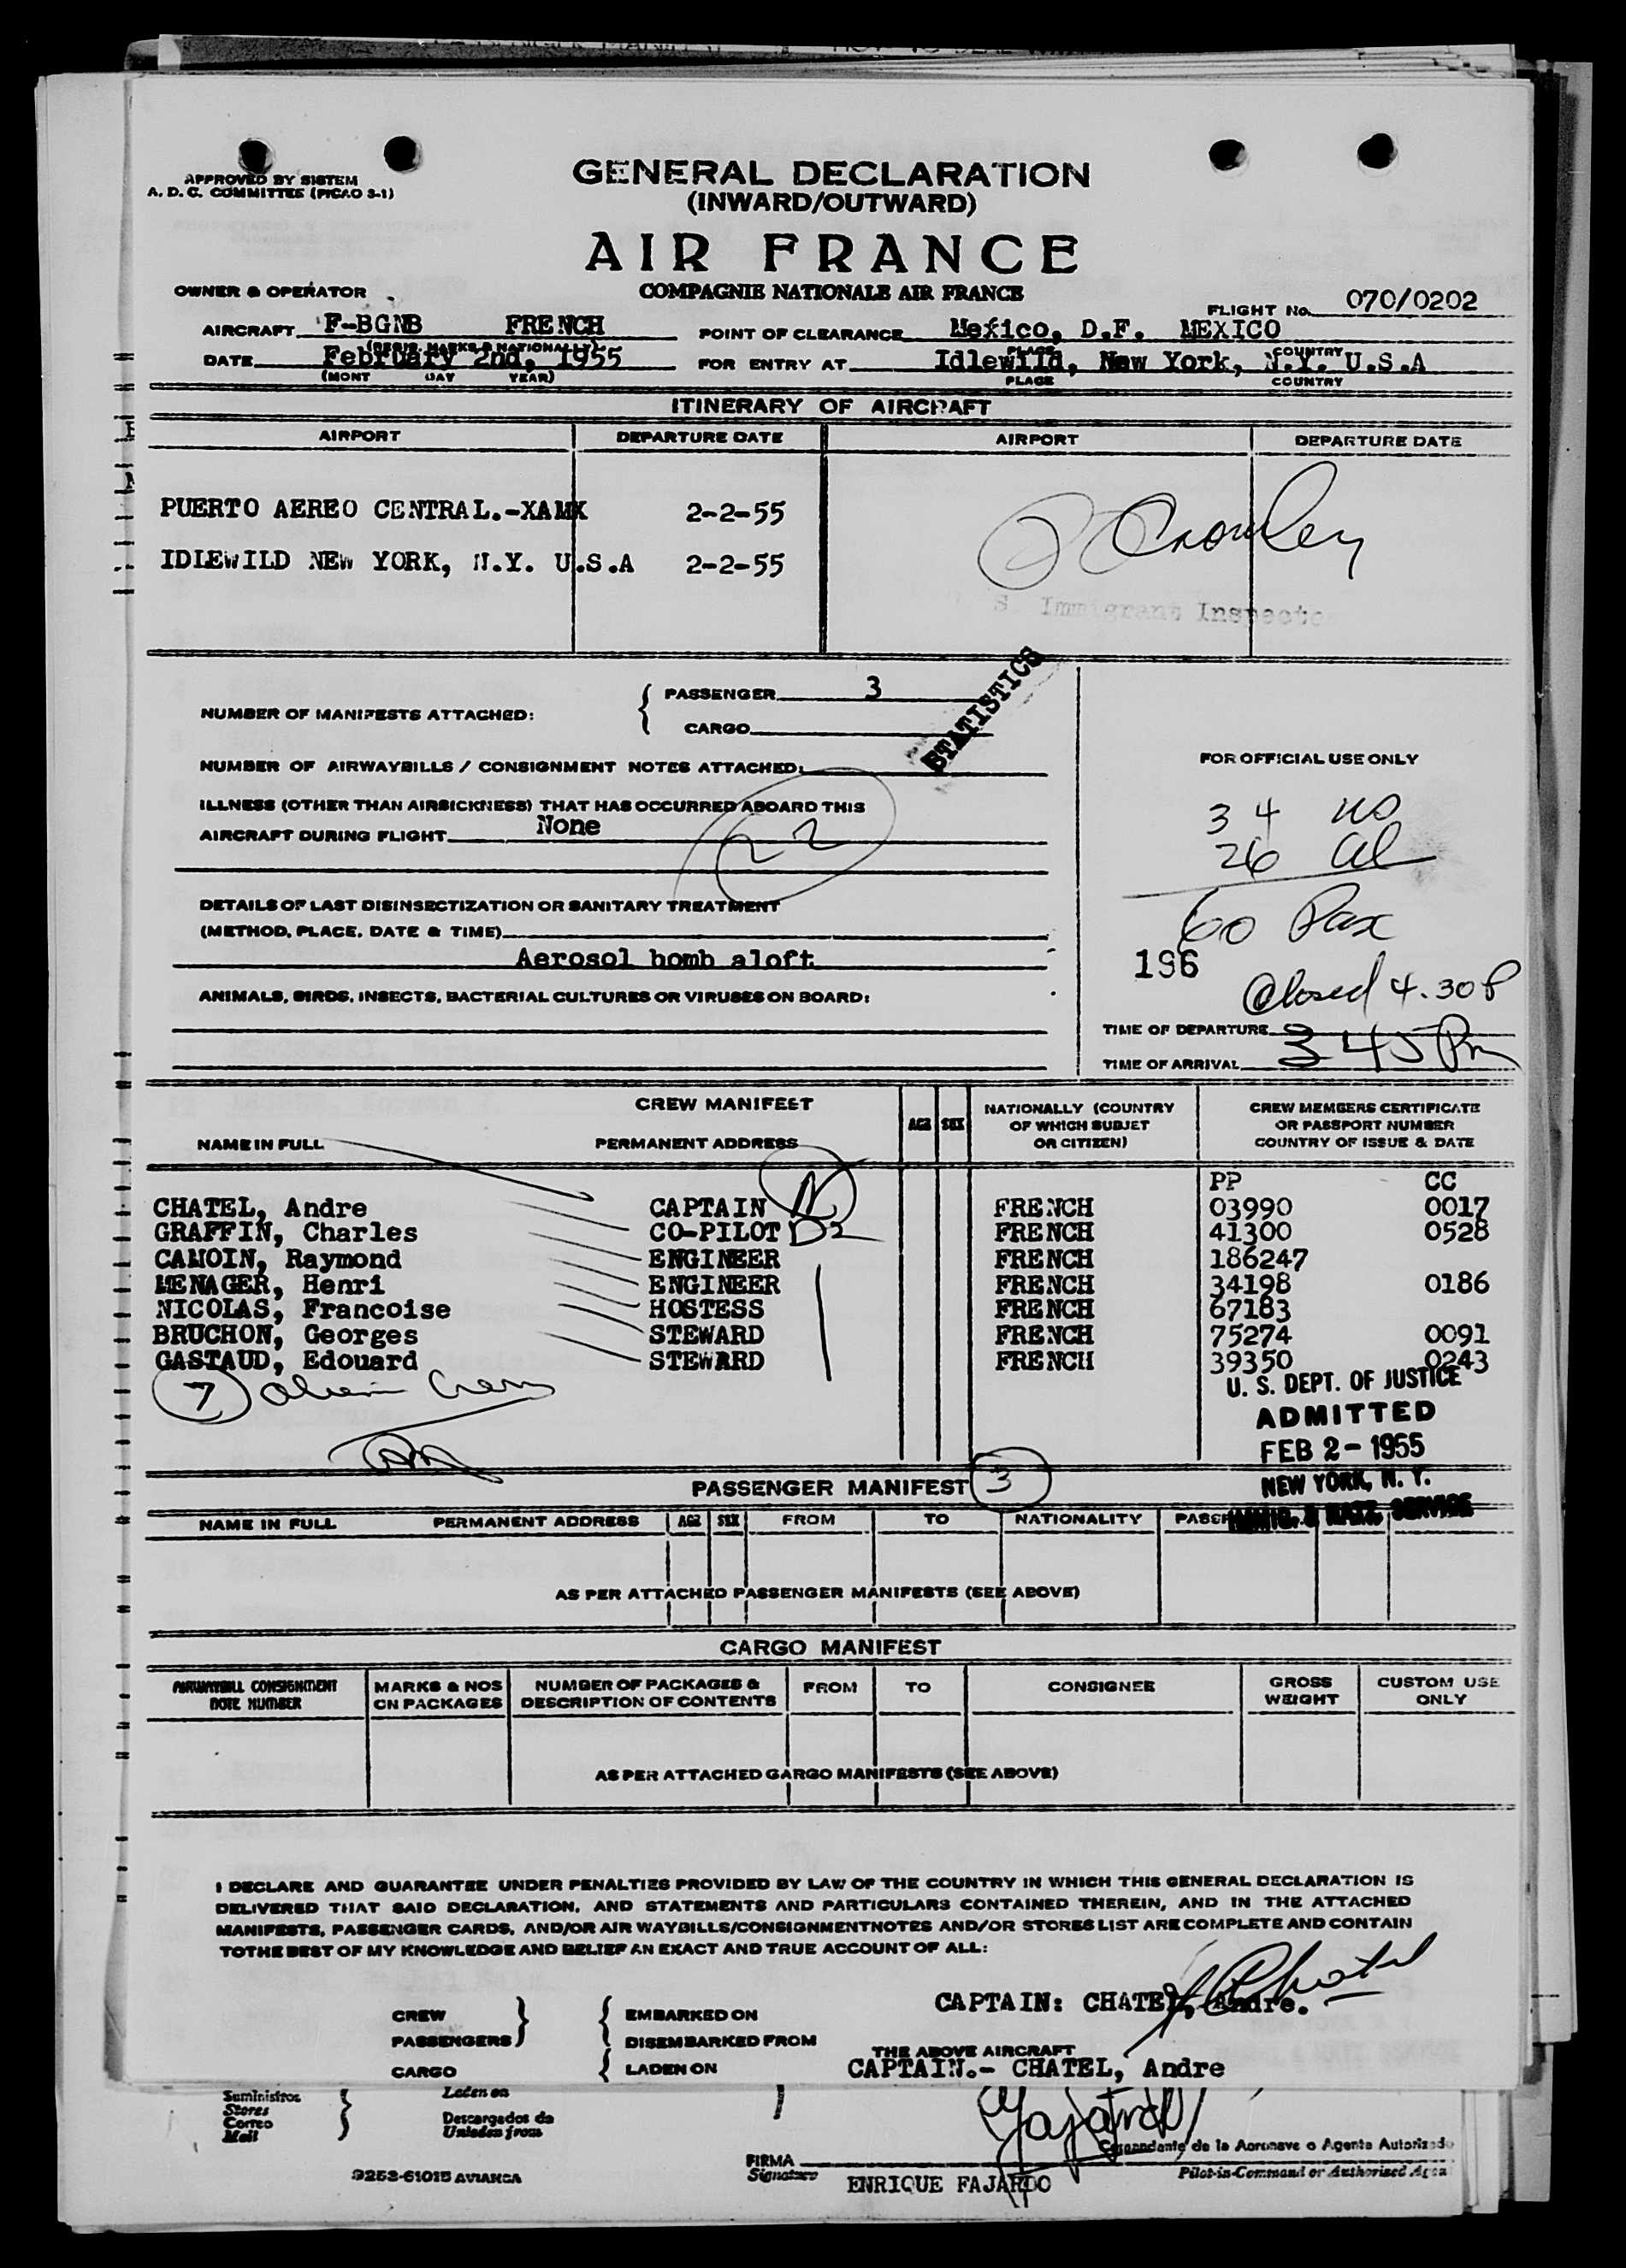 APPROVED BY SISTEM
A. D. C. COMMITTEE (PICAO 3-1)
GENERAL DECLARATION
(INWARD/OUTWARD)
AIR FRANCE
COMPAGNIE NATIONALE AIR FRANCE
OWNER & OPERATOR
FLIGHT No. 070/0202
AIRCRAFT F-BGNB FRENCH
POINT OF CLEARANCE Mexico, D.F. MEXICO
(REGIS. MARKS & NATIONALLY)
PLACE COUNTRY
DATE February 2nd, 1955
FOR ENTRY AT Idlewild, New York, N.Y. U.S.A
(MONT DAY YEAR)
PLACE COUNTRY
ITINERARY OF AIRCRAFT
AIRPORT DEPARTURE DATE AIRPORT DEPARTURE DATE
PUERTO AEREO CENTRAL.-XAMX 2-2-55
Crowley
IDLEWILD NEW YORK, N.Y. U.S.A 2-2-55
S. Immigrant Inspector
STATISTICS
NUMBER OF MANIFESTS ATTACHED:
PASSENGER 3
CARGO
NUMBER OF AIRWAYBILLS / CONSIGNMENT NOTES ATTACHED:
FOR OFFICIAL USE ONLY
ILLNESS (OTHER THAN AIRSICKNESS) THAT HAS OCCURRED ABOARD THIS
AIRCRAFT DURING FLIGHT None
22
34 US
26 al
60 Pax
DETAILS OF LAST DISINSECTIZATION OR SANITARY TREATMENT
(METHOD, PLACE, DATE & TIME)
Aerosol bomb aloft
196
Closed 4.30 P
ANIMALS, BIRDS, INSECTS, BACTERIAL CULTURES OR VIRUSES ON BOARD:
TIME OF DEPARTURE
TIME OF ARRIVAL 3 45 Pm
CREW MANIFEST
NAME IN FULL PERMANENT ADDRESS AGE SEX NATIONALLY (COUNTRY OF WHICH SUBJET OR CITIZEN) CREW MEMBERS CERTIFICATE OR PASSPORT NUMBER COUNTRY OF ISSUE & DATE
PP CC
CHATEL, Andre CAPTAIN FRENCH 03990 0017
GRAFFIN, Charles CO-PILOT D2 FRENCH 41300 0528
CAMOIN, Raymond ENGINEER FRENCH 186247
MENAGER, Henri ENGINEER FRENCH 34198 0186
NICOLAS, Francoise HOSTESS FRENCH 67183
BRUCHON, Georges STEWARD FRENCH 75274 0091
GASTAUD, Edouard STEWARD FRENCH 39350 0243
7 alien Crew
U. S. DEPT. OF JUSTICE
ADMITTED
FEB 2 - 1955
NEW YORK, N. Y.
IMMIG. & NATZ. SERVICE
PASSENGER MANIFEST 3
NAME IN FULL PERMANENT ADDRESS AGE SEX FROM TO NATIONALITY
AS PER ATTACHED PASSENGER MANIFESTS (SEE ABOVE)
CARGO MANIFEST
AIRWAYBILL CONSIGNMENT NOTE NUMBER MARKS & NOS ON PACKAGES NUMBER OF PACKAGES & DESCRIPTION OF CONTENTS FROM TO CONSIGNEE GROSS WEIGHT CUSTOM USE ONLY
AS PER ATTACHED CARGO MANIFESTS (SEE ABOVE)
I DECLARE AND GUARANTEE UNDER PENALTIES PROVIDED BY LAW OF THE COUNTRY IN WHICH THIS GENERAL DECLARATION IS
DELIVERED THAT SAID DECLARATION, AND STATEMENTS AND PARTICULARS CONTAINED THEREIN, AND IN THE ATTACHED
MANIFESTS, PASSENGER CARDS, AND/OR AIR WAYBILLS/CONSIGNMENTNOTES AND/OR STORES LIST ARE COMPLETE AND CONTAIN
TOTHE BEST OF MY KNOWLEDGE AND BELIEF AN EXACT AND TRUE ACCOUNT OF ALL:
Chatel
CAPTAIN: CHATEL, Andre.
CREW EMBARKED ON
PASSENGERS DISEMBARKED FROM
THE ABOVE AIRCRAFT
CARGO LADEN ON
CAPTAIN.- CHATEL, Andre
Suministros Laden on
Stores
Correo Descargados de
Mail Unladen from
Fajardo
Comandante de la Aeronave o Agente Autorizado
FIRMA
9253-61015 AVIANCA Signature ENRIQUE FAJARDO Pilot-in-Command or Authorised Agent